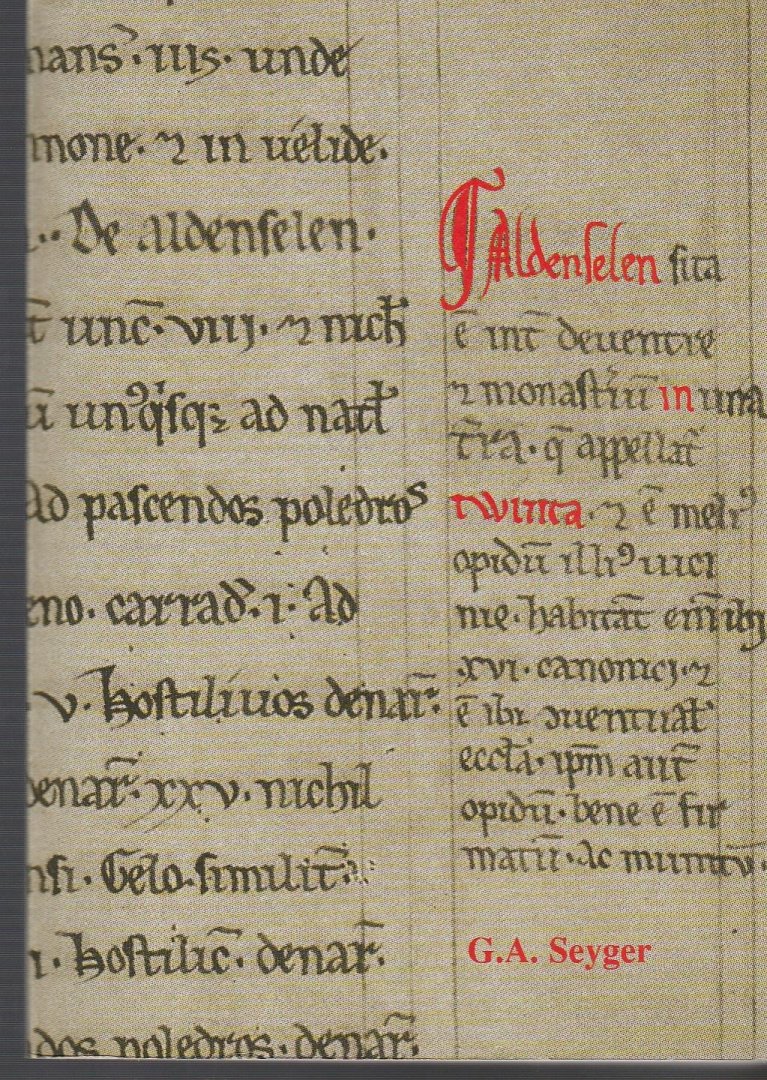 mans᷒· iiis· unde
mone· ⁊ in uelide·
De aldenselen·
unc̄· viij· ⁊ nich̄
un᷒q̇sq; ad natł
Ad pascendos poledros
eno· carrad᷒· i· Ad
v· hostiliuios denar̄·
denar̄· xxv· nichil
nsi· Gelo· similit̄·
i· hostilic̄· denar̄·
dos poledros· denar̄·
Aldenselen sita
ē int̄ deuentre
⁊ monast᷒iū in una
t̄ra· q̄ appellat᷒
twinta· ⁊ ē meli᷒
opidū illi᷒ uici
nie· habitāt em̄ ibi
xvi· canonicj· ⁊
ē ibi ↄuentual᷒
eccła· ipm̄ aut̄
opidū· bene ē fir
matū· ac munitū·
G.A. Seyger